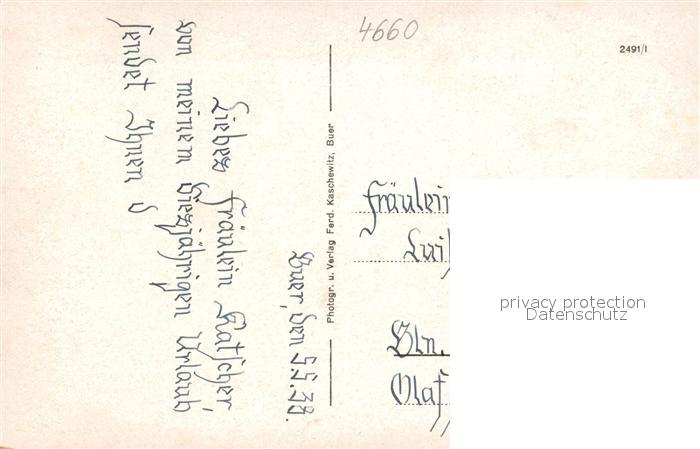 4660
2491/I
Buer, den 5.5.38.
Liebes Fräulein Katscher,
von meinem diesjährigen Urlaub
sendet Ihnen
Photogr. u. Verlag Ferd. Kaschewitz, Buer
Fräulein
Bln.
privacy protection
Datenschutz